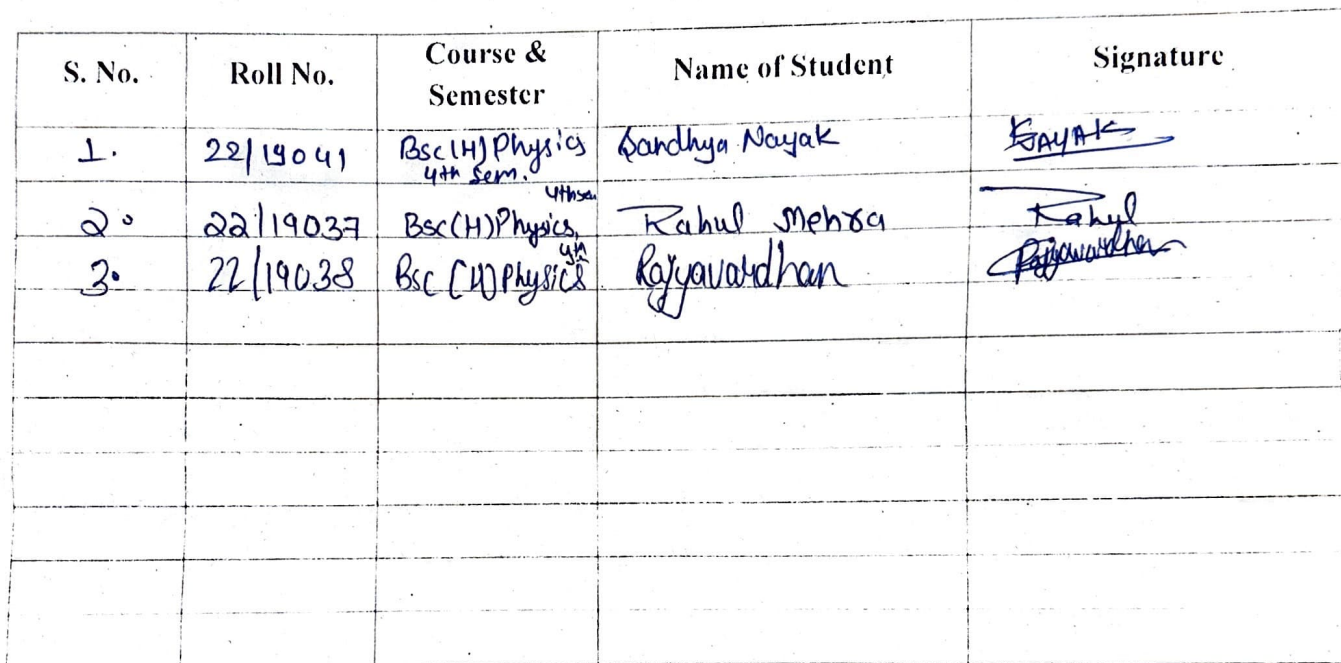 S. No. Roll No. Course & Semester Name of Student Signature
1. 22/19041 Bsc(H) Physics 4th Sem. Sandhya Nayak NAYAK
2. 22/19037 Bsc(H) Physics, 4th sem Rahul Mehra Rahul
3. 22/19038 Bsc (H) Physics 4th Rajyavardhan Rajyavardhan